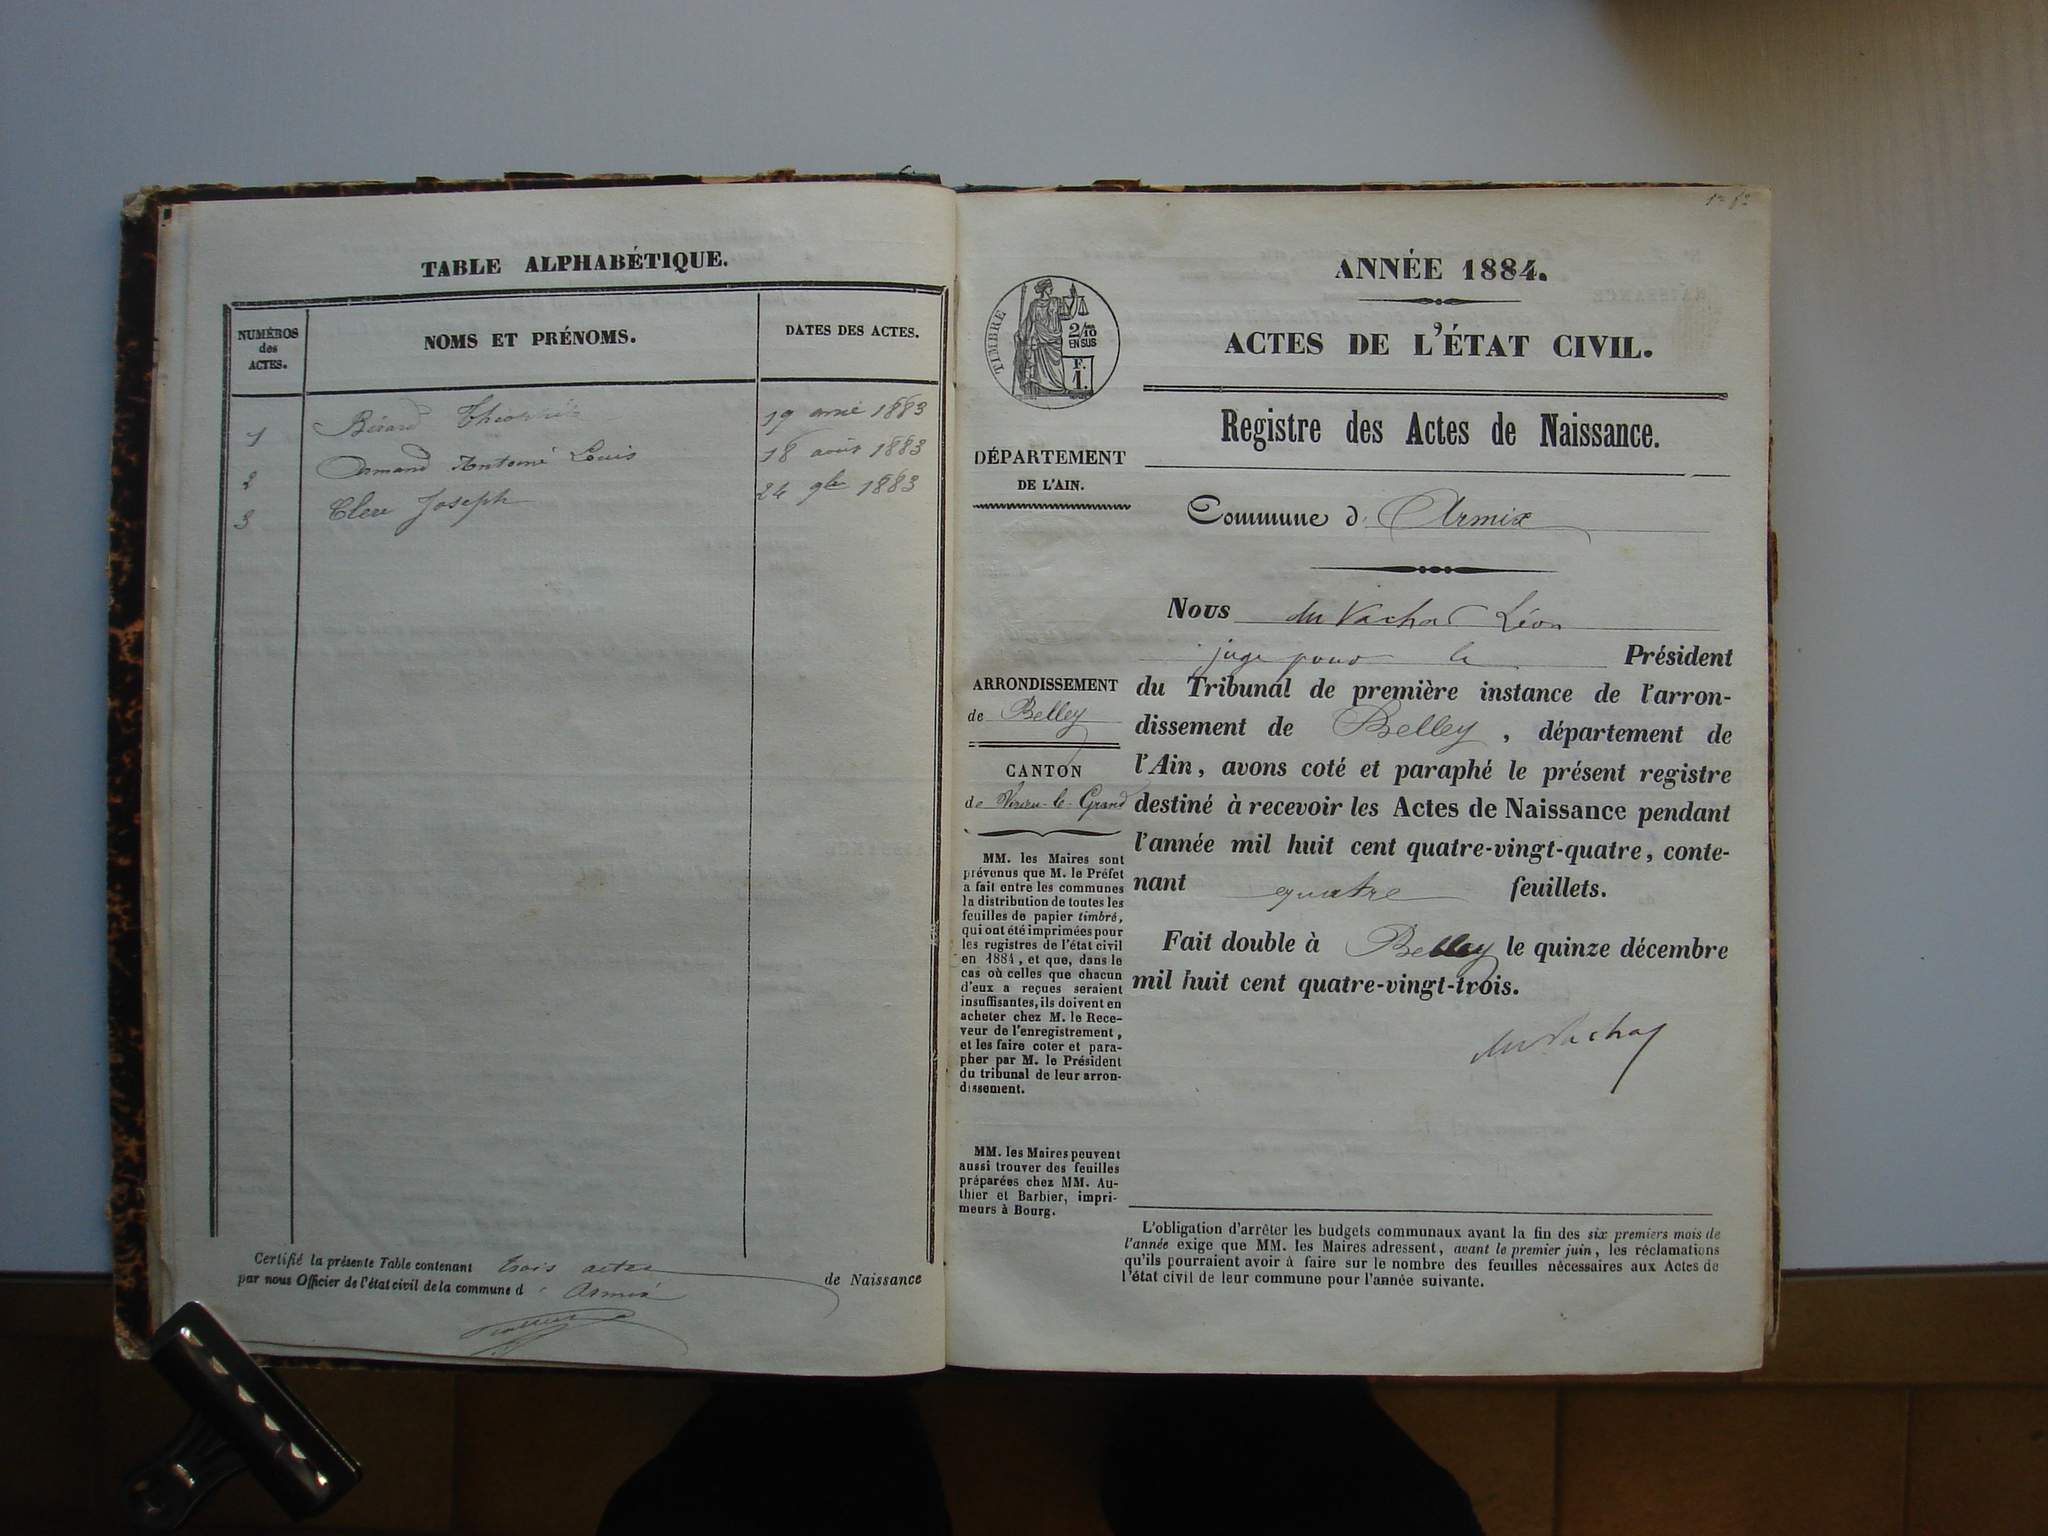 TABLE ALPHABÉTIQUE.
NUMÉROS
des
ACTES.
NOMS ET PRÉNOMS.
DATES DES ACTES.
1 Bérard Théophile 19 1883
2 Armand Antoine Louis 18 août 1883
3 Clerc Joseph 24 9bre 1883
Certifié la présente Table contenant trois actes de Naissance
par nous Officier de l'état civil de la commune d' Armix
1er fo
TIMBRE
2/10
EN SUS
F.
1.
DÉPARTEMENT
DE L'AIN.
ARRONDISSEMENT
de Belley
CANTON
de Virieu-le-Grand
MM. les Maires sont
prévenus que M. le Préfet
a fait entre les communes
la distribution de toutes les
feuilles de papier timbré,
qui ont été imprimées pour
les registres de l'état civil
en 1884, et que, dans le
cas où celles que chacun
d'eux a reçues seraient
insuffisantes, ils doivent en
acheter chez M. le Rece-
veur de l'enregistrement,
et les faire coter et para-
pher par M. le Président
du tribunal de leur arron-
dissement.
MM. les Maires peuvent
aussi trouver des feuilles
préparées chez MM. Au-
thier et Barbier, impri-
meurs à Bourg.
ANNÉE 1884.
ACTES DE L'ÉTAT CIVIL.
Registre des Actes de Naissance.
Commune d' Armix
Nous du Vachat Léon
juge pour le Président
du Tribunal de première instance de l'arron-
dissement de Belley, département de
l'Ain, avons coté et paraphé le présent registre
destiné à recevoir les Actes de Naissance pendant
l'année mil huit cent quatre-vingt-quatre, conte-
nant quatre feuillets.
Fait double à Belley le quinze décembre
mil huit cent quatre-vingt-trois.
du Vachat
L'obligation d'arrêter les budgets communaux avant la fin des six premiers mois de
l'année exige que MM. les Maires adressent, avant le premier juin, les réclamations
qu'ils pourraient avoir à faire sur le nombre des feuilles nécessaires aux Actes de
l'état civil de leur commune pour l'année suivante.